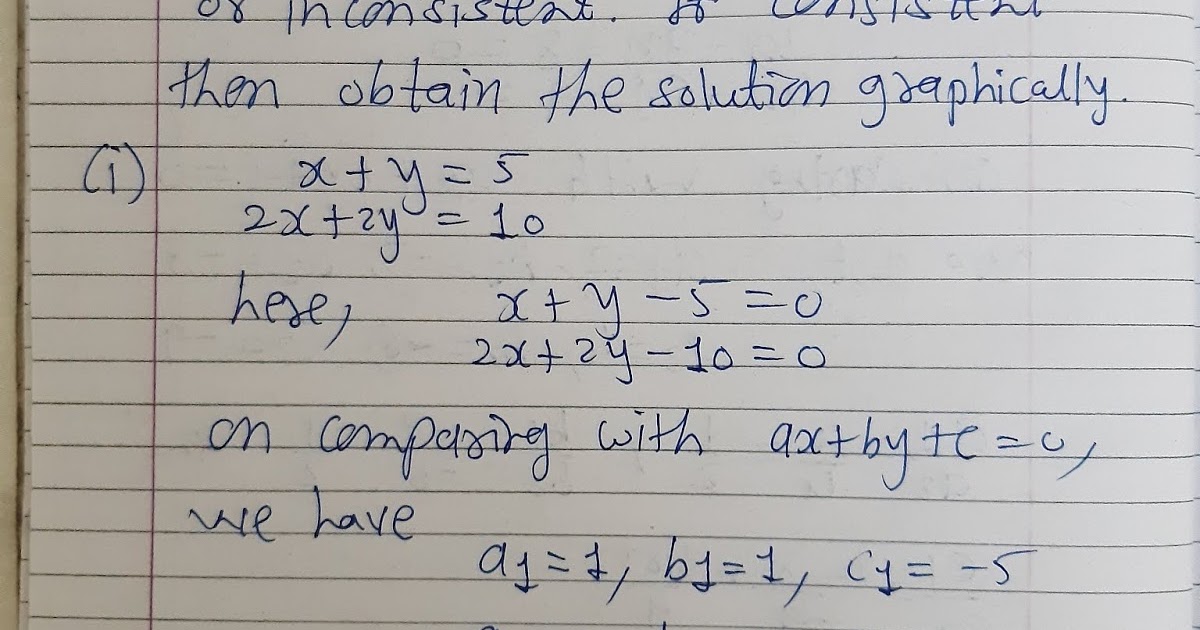 or inconsistent. If consistent
then obtain the solution graphically.
(i) x + y = 5
2x + 2y = 10
here, x + y - 5 = 0
2x + 2y - 10 = 0
on comparing with ax + by + c = 0,
we have
a1 = 1, b1 = 1, c1 = -5